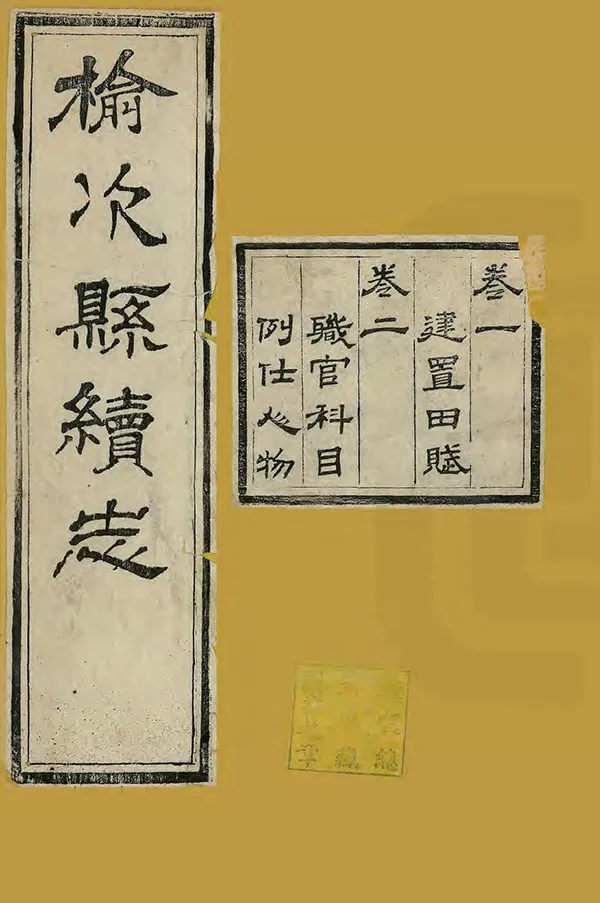 榆次縣續志
卷一
建置田賦
卷二
職官科目
例仕人物